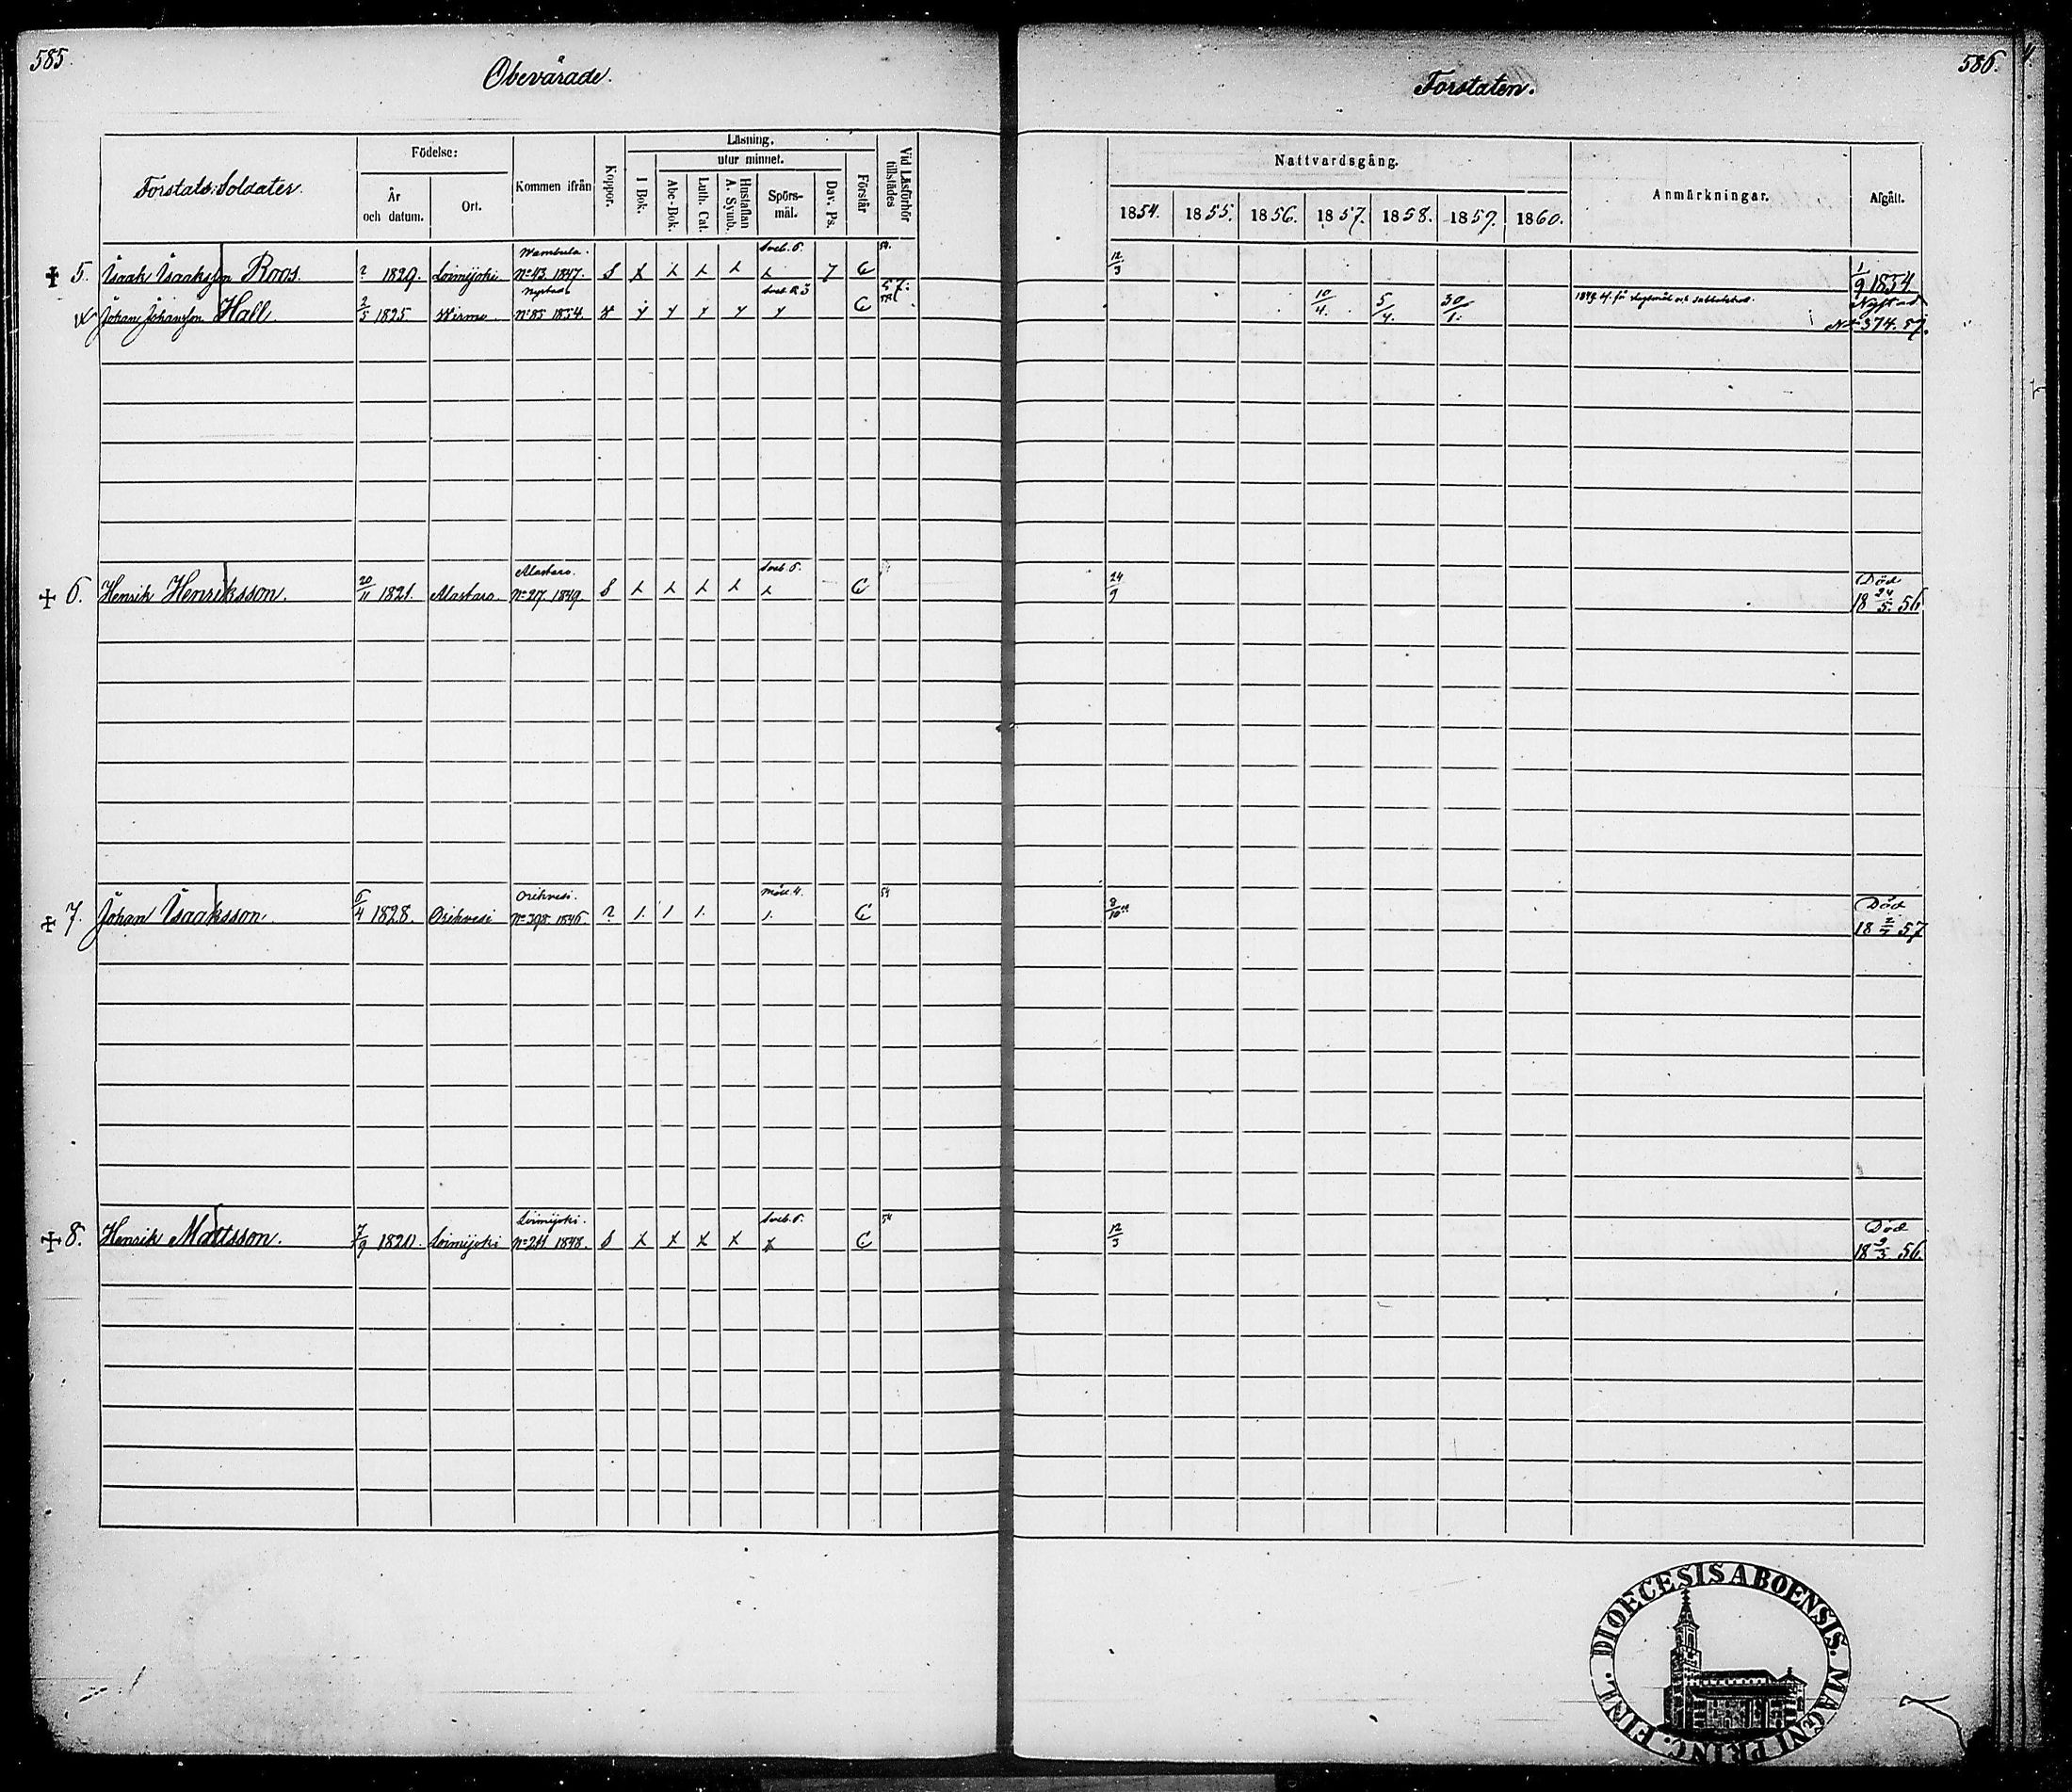 585.
586.
Obevärade
Forstaten.
Forstats Soldater.
Födelse:
År och datum.
Ort.
Kommen ifrån
Koppor.
Läsning,
I Bok.
utur minnet.
Abc-Bok.
Luth. Cat.
Hustaflan A. Symb.
Spörs-mål.
Dav. Ps.
Förstår
Vid Läsförhör tillstädes
Nattvardsgång.
1854. 1855. 1856. 1857. 1858. 1859. 1860.
Anmärkningar.
Afgått.
5. Isaak Isaaksson Roos. ? 1829. Loimijoki Wambula. No 43. 1847. S 7 C 54. 12/3 1/9 1854
Johan Johansson Hall. 2/5 1825. Wirmo. Nystad No 85 1854. C 57. 10/4. 5/4. 30/1. Nystad No 374. 57.
6. Henrik Henriksson. 20/11 1821. Alastaro. Alastaro. No 217 1849. S C 24/9 Död 18 24/5. 56
7. Johan Isaaksson. 5/4 1828. Orihvesi Orihvesi. No 398. 1846. ? C 54 8/10 Död 18 57
8. Henrik Mattsson. 7/9 1820. Loimijoki Loimijoki. No 211 1848. S C 54 12/3 Död 18 56.
FINL. DIOECESIS ABOENSIS. MAGNI PRINC.